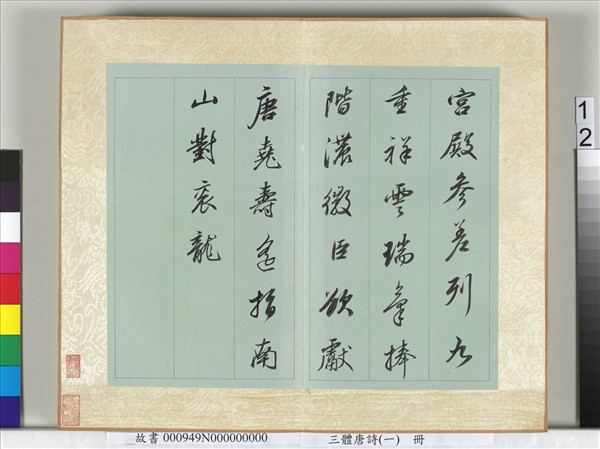 宮殿參差列九
重祥雲瑞氣捧
階濃微臣欲獻
唐堯壽遙指南
山對袞龍
故書 000949N000000000 三體唐詩(一) 冊
1
2